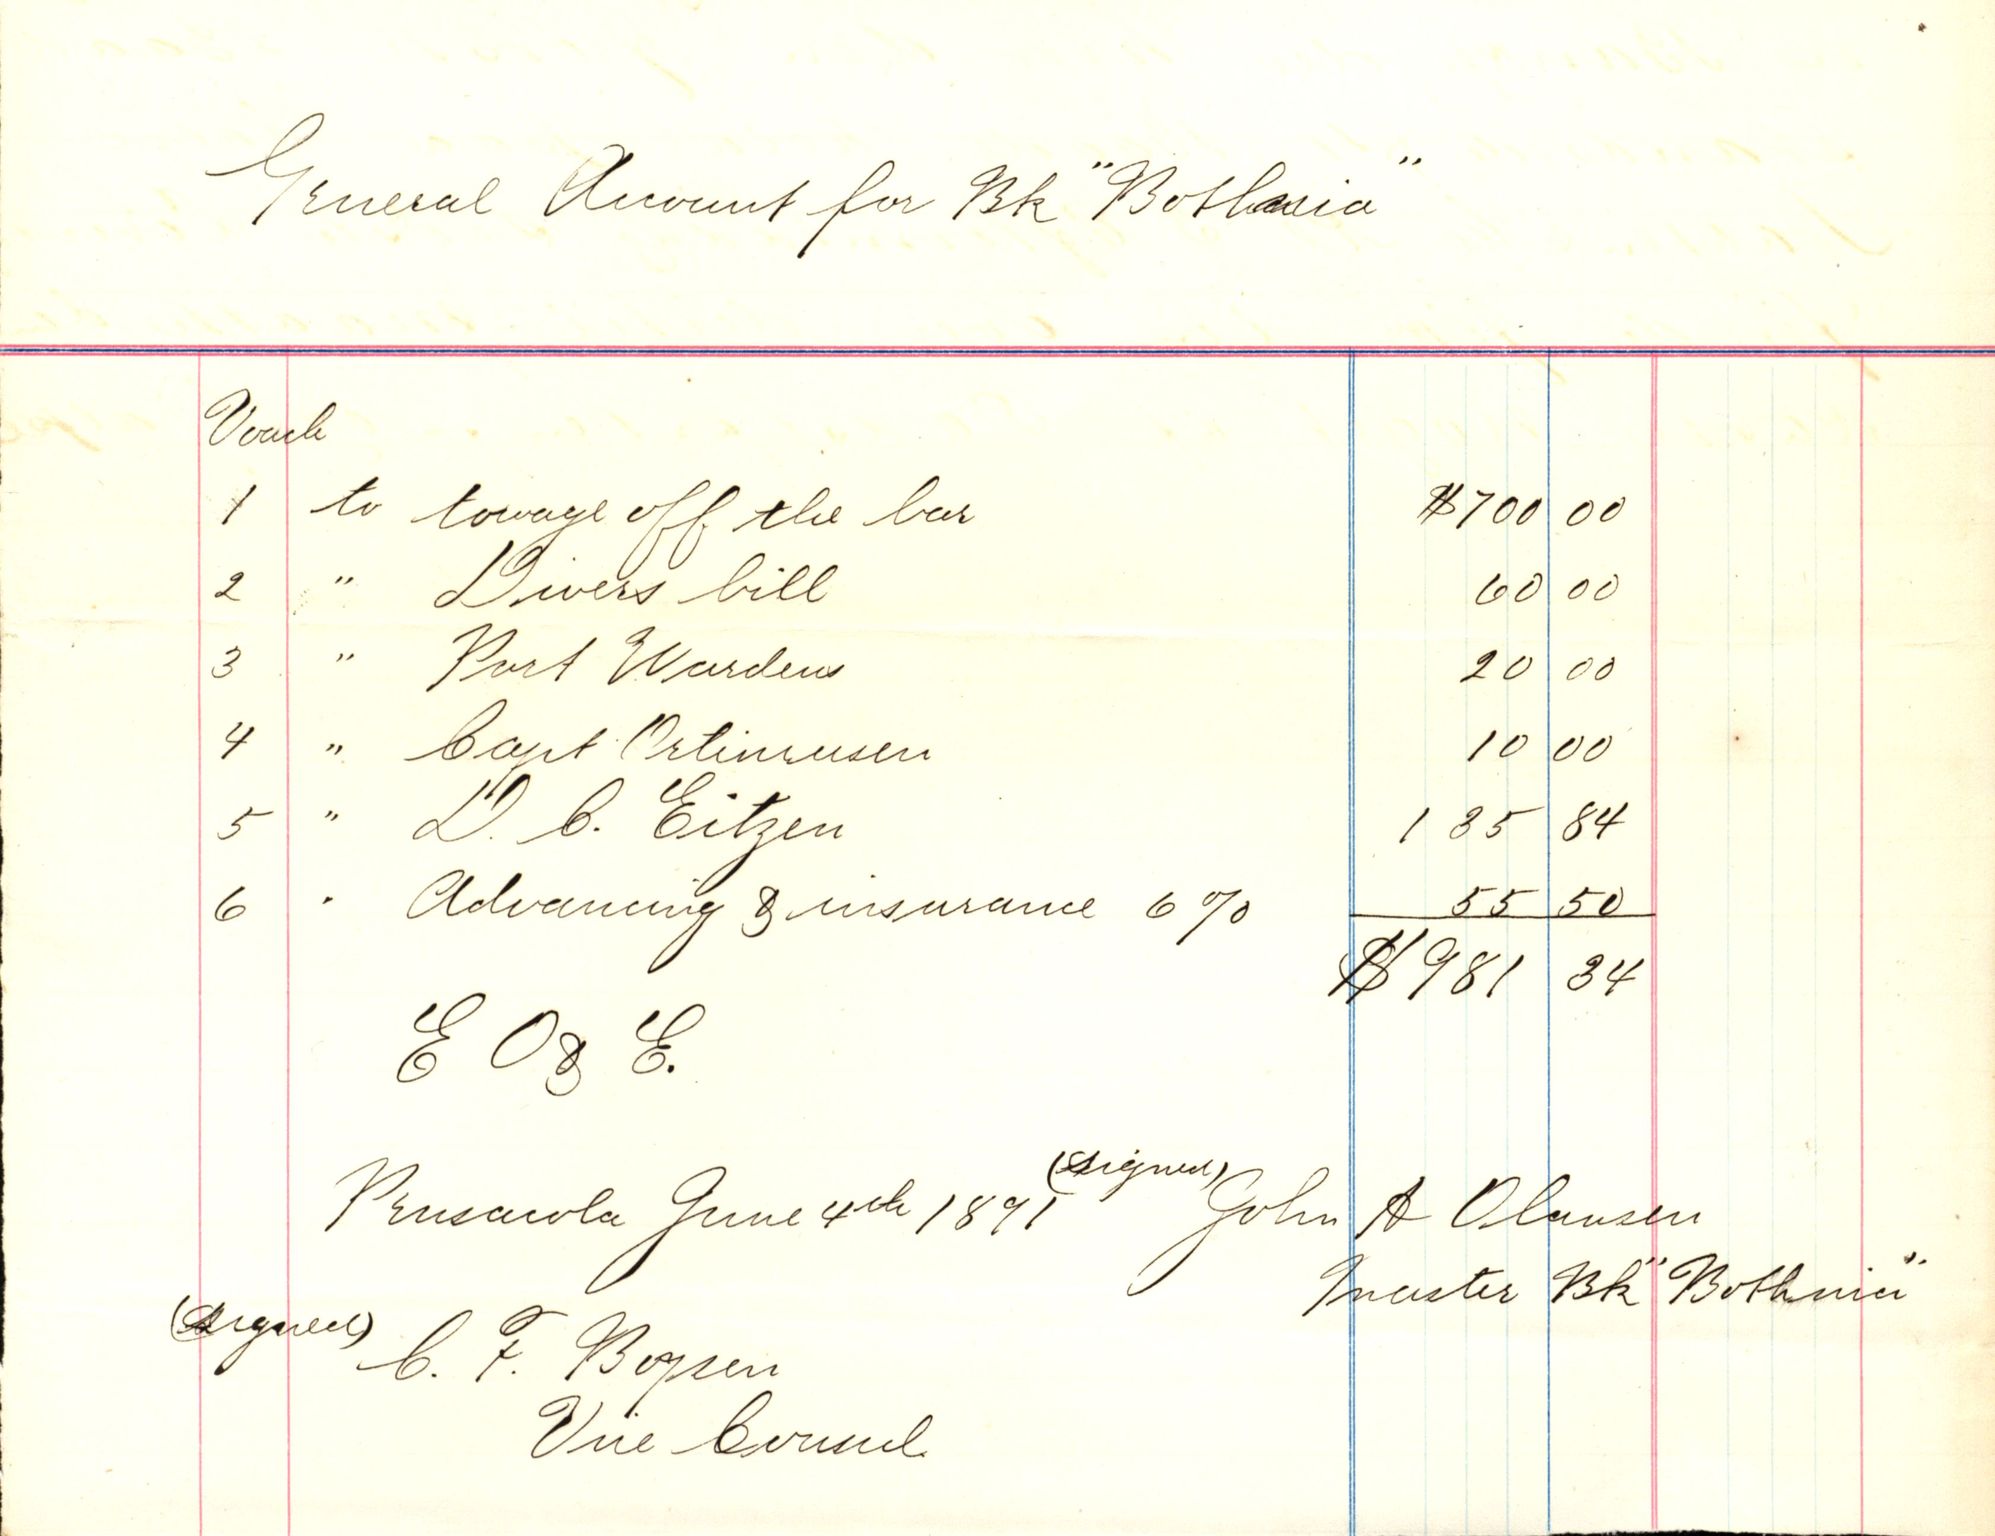 General Account for Bk "Bothnia"
Vouch
1 to towage off the bar $700 00
2 " Divers bill 60 00
3 " Port Wardens 20 00
4 " Capt 10 00
5 " D. C. Eitzen 135 84
6 " Advancing & insurance 6% 55 50
$981 34
E O & E.
Pensacola June 4th 1891 (signed) John A Olausen
Master Bk "Bothnia"
(signed) C. F. Boysen
Vice Consul